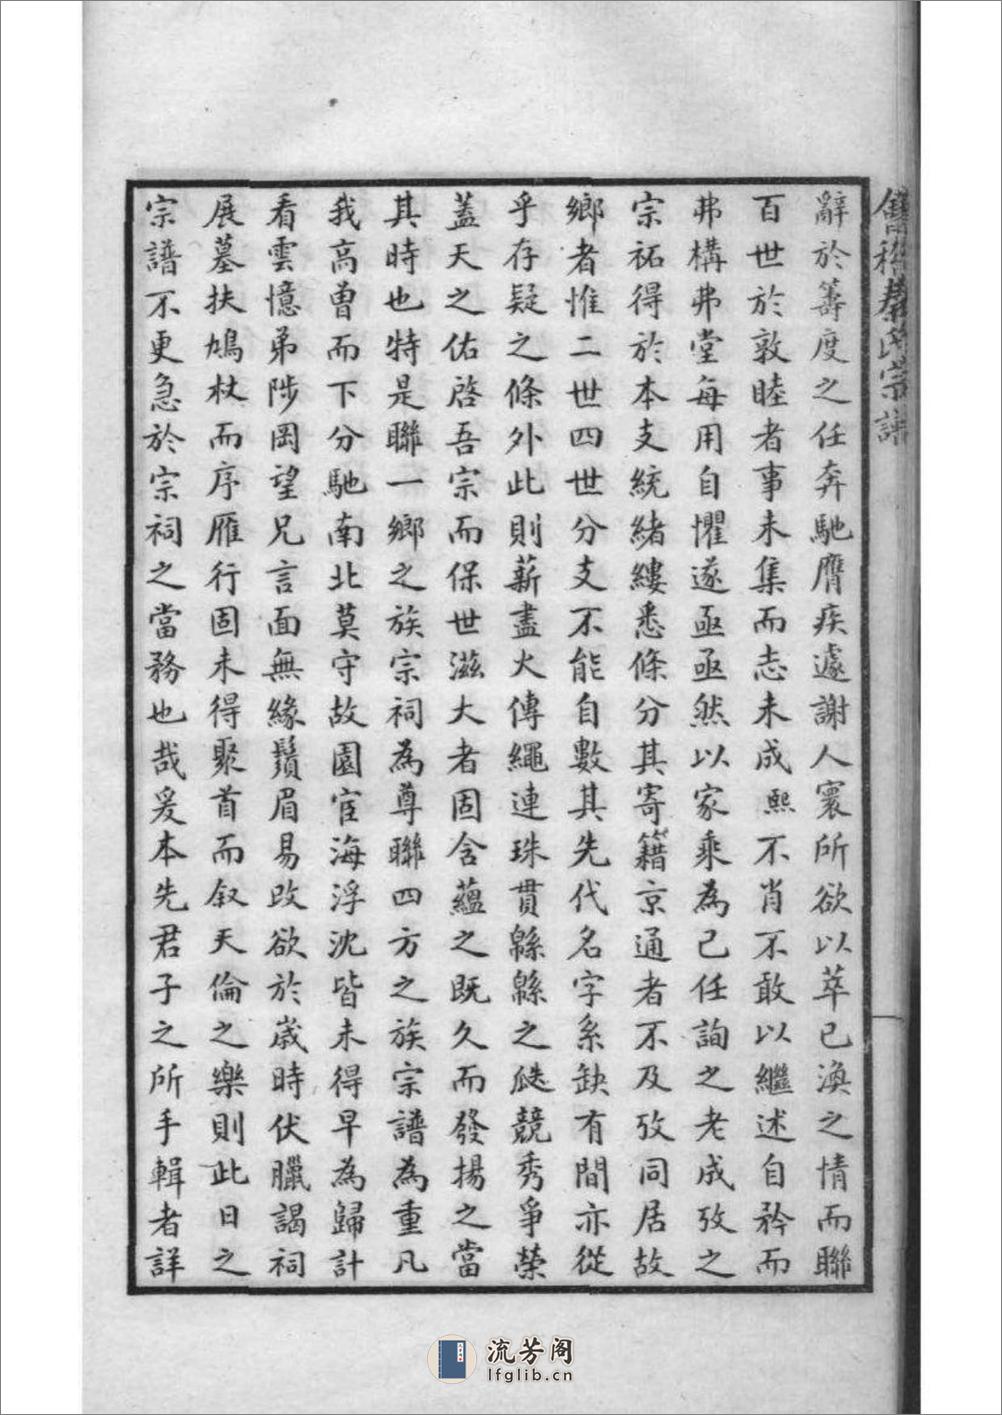 會稽秦氏宗譜
辭於籌度之任奔馳膺疾遽謝人寰所欲以萃已渙之情而聯
百世於敦睦者事未集而志未成熙不肖不敢以繼述自矜而
弗構弗堂每用自懼遂亟亟然以家乘為己任詢之老成攷之
宗祏得於本支統緒縷悉條分其寄籍京通者不及攷同居故
鄉者惟二世四世分支不能自數其先代名字系缺有間亦從
乎存疑之條外此則薪盡火傳繩連珠貫緜緜之瓞競秀爭榮
蓋天之佑啓吾宗而保世滋大者固含蘊之既久而發揚之當
其時也特是聯一鄉之族宗祠為尊聯四方之族宗譜為重凡
我高曾而下分馳南北莫守故園宦海浮沈皆未得早為歸計
看雲憶弟陟岡望兄言面無緣鬚眉易改欲於歲時伏臘謁祠
展墓扶鳩杖而序雁行固未得聚首而叙天倫之樂則此日之
宗譜不更急於宗祠之當務也哉爰本先君子之所手輯者詳
流芳阁
lfglib.cn